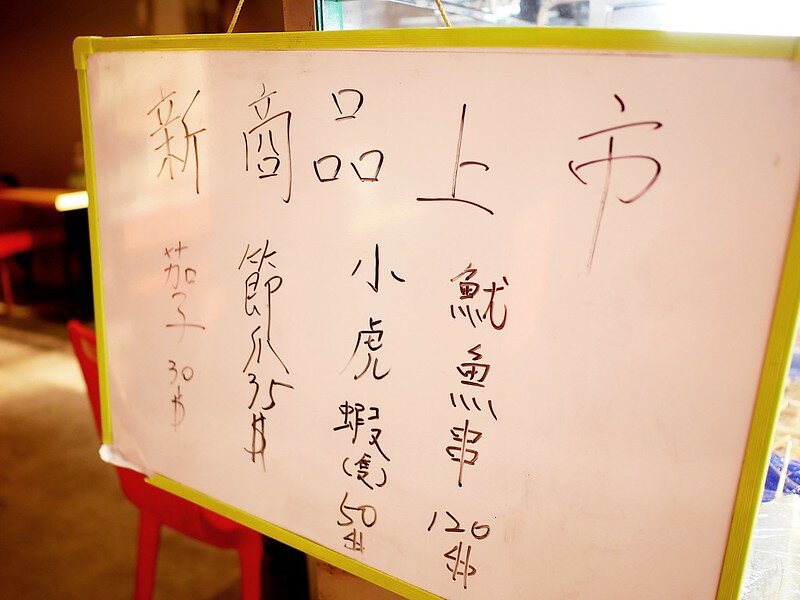 新商品上市
魷魚串 120$
小虎蝦(隻) 50$
節瓜 35$
茄子 30$